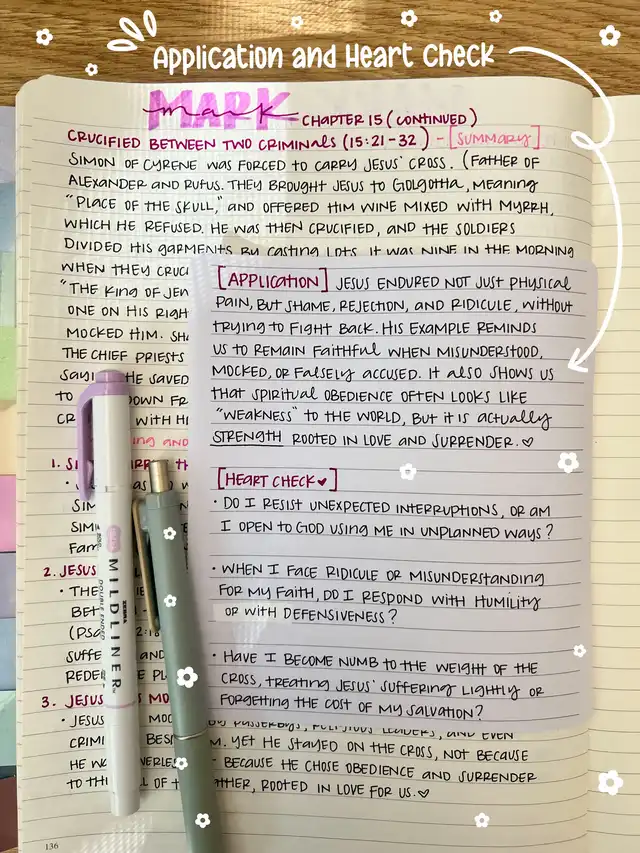 Application and Heart Check
MARK
mark CHAPTER 15 (CONTINUED)
CRUCIFIED BETWEEN TWO CRIMINALS (15:21-32) - [SUMMARY]
SIMON OF CYRENE WAS FORCED TO CARRY JESUS' CROSS. (FATHER OF
ALEXANDER AND RUFUS. THEY BROUGHT JESUS TO GOLGOTHA, MEANING
"PLACE OF THE SKULL," AND OFFERED HIM WINE MIXED WITH MYRRH,
WHICH HE REFUSED. HE WAS THEN CRUCIFIED, AND THE SOLDIERS
DIVIDED HIS GARMENTS BY CASTING LOTS. IT WAS NINE IN THE MORNING
WHEN THEY CRUCI
"THE KING OF JEW
ONE ON HIS RIGH
MOCKED HIM. SHA
THE CHIEF PRIESTS
SAYI HE SAVED
TO DOWN FR
CR WITH HI
ing and
[APPLICATION] JESUS ENDURED NOT JUST PHYSICAL
PAIN, BUT SHAME, REJECTION, AND RIDICULE, WITHOUT
TRYING TO FIGHT BACK. HIS EXAMPLE REMINDS
US TO REMAIN FAITHFUL WHEN MISUNDERSTOOD,
MOCKED, OR FALSELY ACCUSED. IT ALSO SHOWS US
THAT SPIRITUAL OBEDIENCE OFTEN LOOKS LIKE
"WEAKNESS" TO THE WORLD, BUT IT IS ACTUALLY
STRENGTH ROOTED IN LOVE AND SURRENDER.♡
[HEART CHECK♥]
• DO I RESIST UNEXPECTED INTERRUPTIONS, OR AM
I OPEN TO GOD USING ME IN UNPLANNED WAYS?
• WHEN I FACE RIDICULE OR MISUNDERSTANDING
FOR MY FAITH, DO I RESPOND WITH HUMILITY
OR WITH DEFENSIVENESS?
• HAVE I BECOME NUMB TO THE WEIGHT OF THE
CROSS, TREATING JESUS' SUFFERING LIGHTLY OR
FORGETTING THE COST OF MY SALVATION?
1. SI
SIM
SIM
FAM
2. JESUS
• THE
BET
(PSA
SUFFE AND
REDE PL
3. JESUS MO
• JESUS MOC BY PASSERBYS, RELIGIOUS LEADERS, AND EVEN
CRIMI BESI M. YET HE STAYED ON THE CROSS, NOT BECAUSE
HE WA VERLE - BECAUSE HE CHOSE OBEDIENCE AND SURRENDER
TO TH L OF T ATHER, ROOTED IN LOVE FOR US.♡
ZEBRA
MILDLINER™
DOUBLE ENDED
136